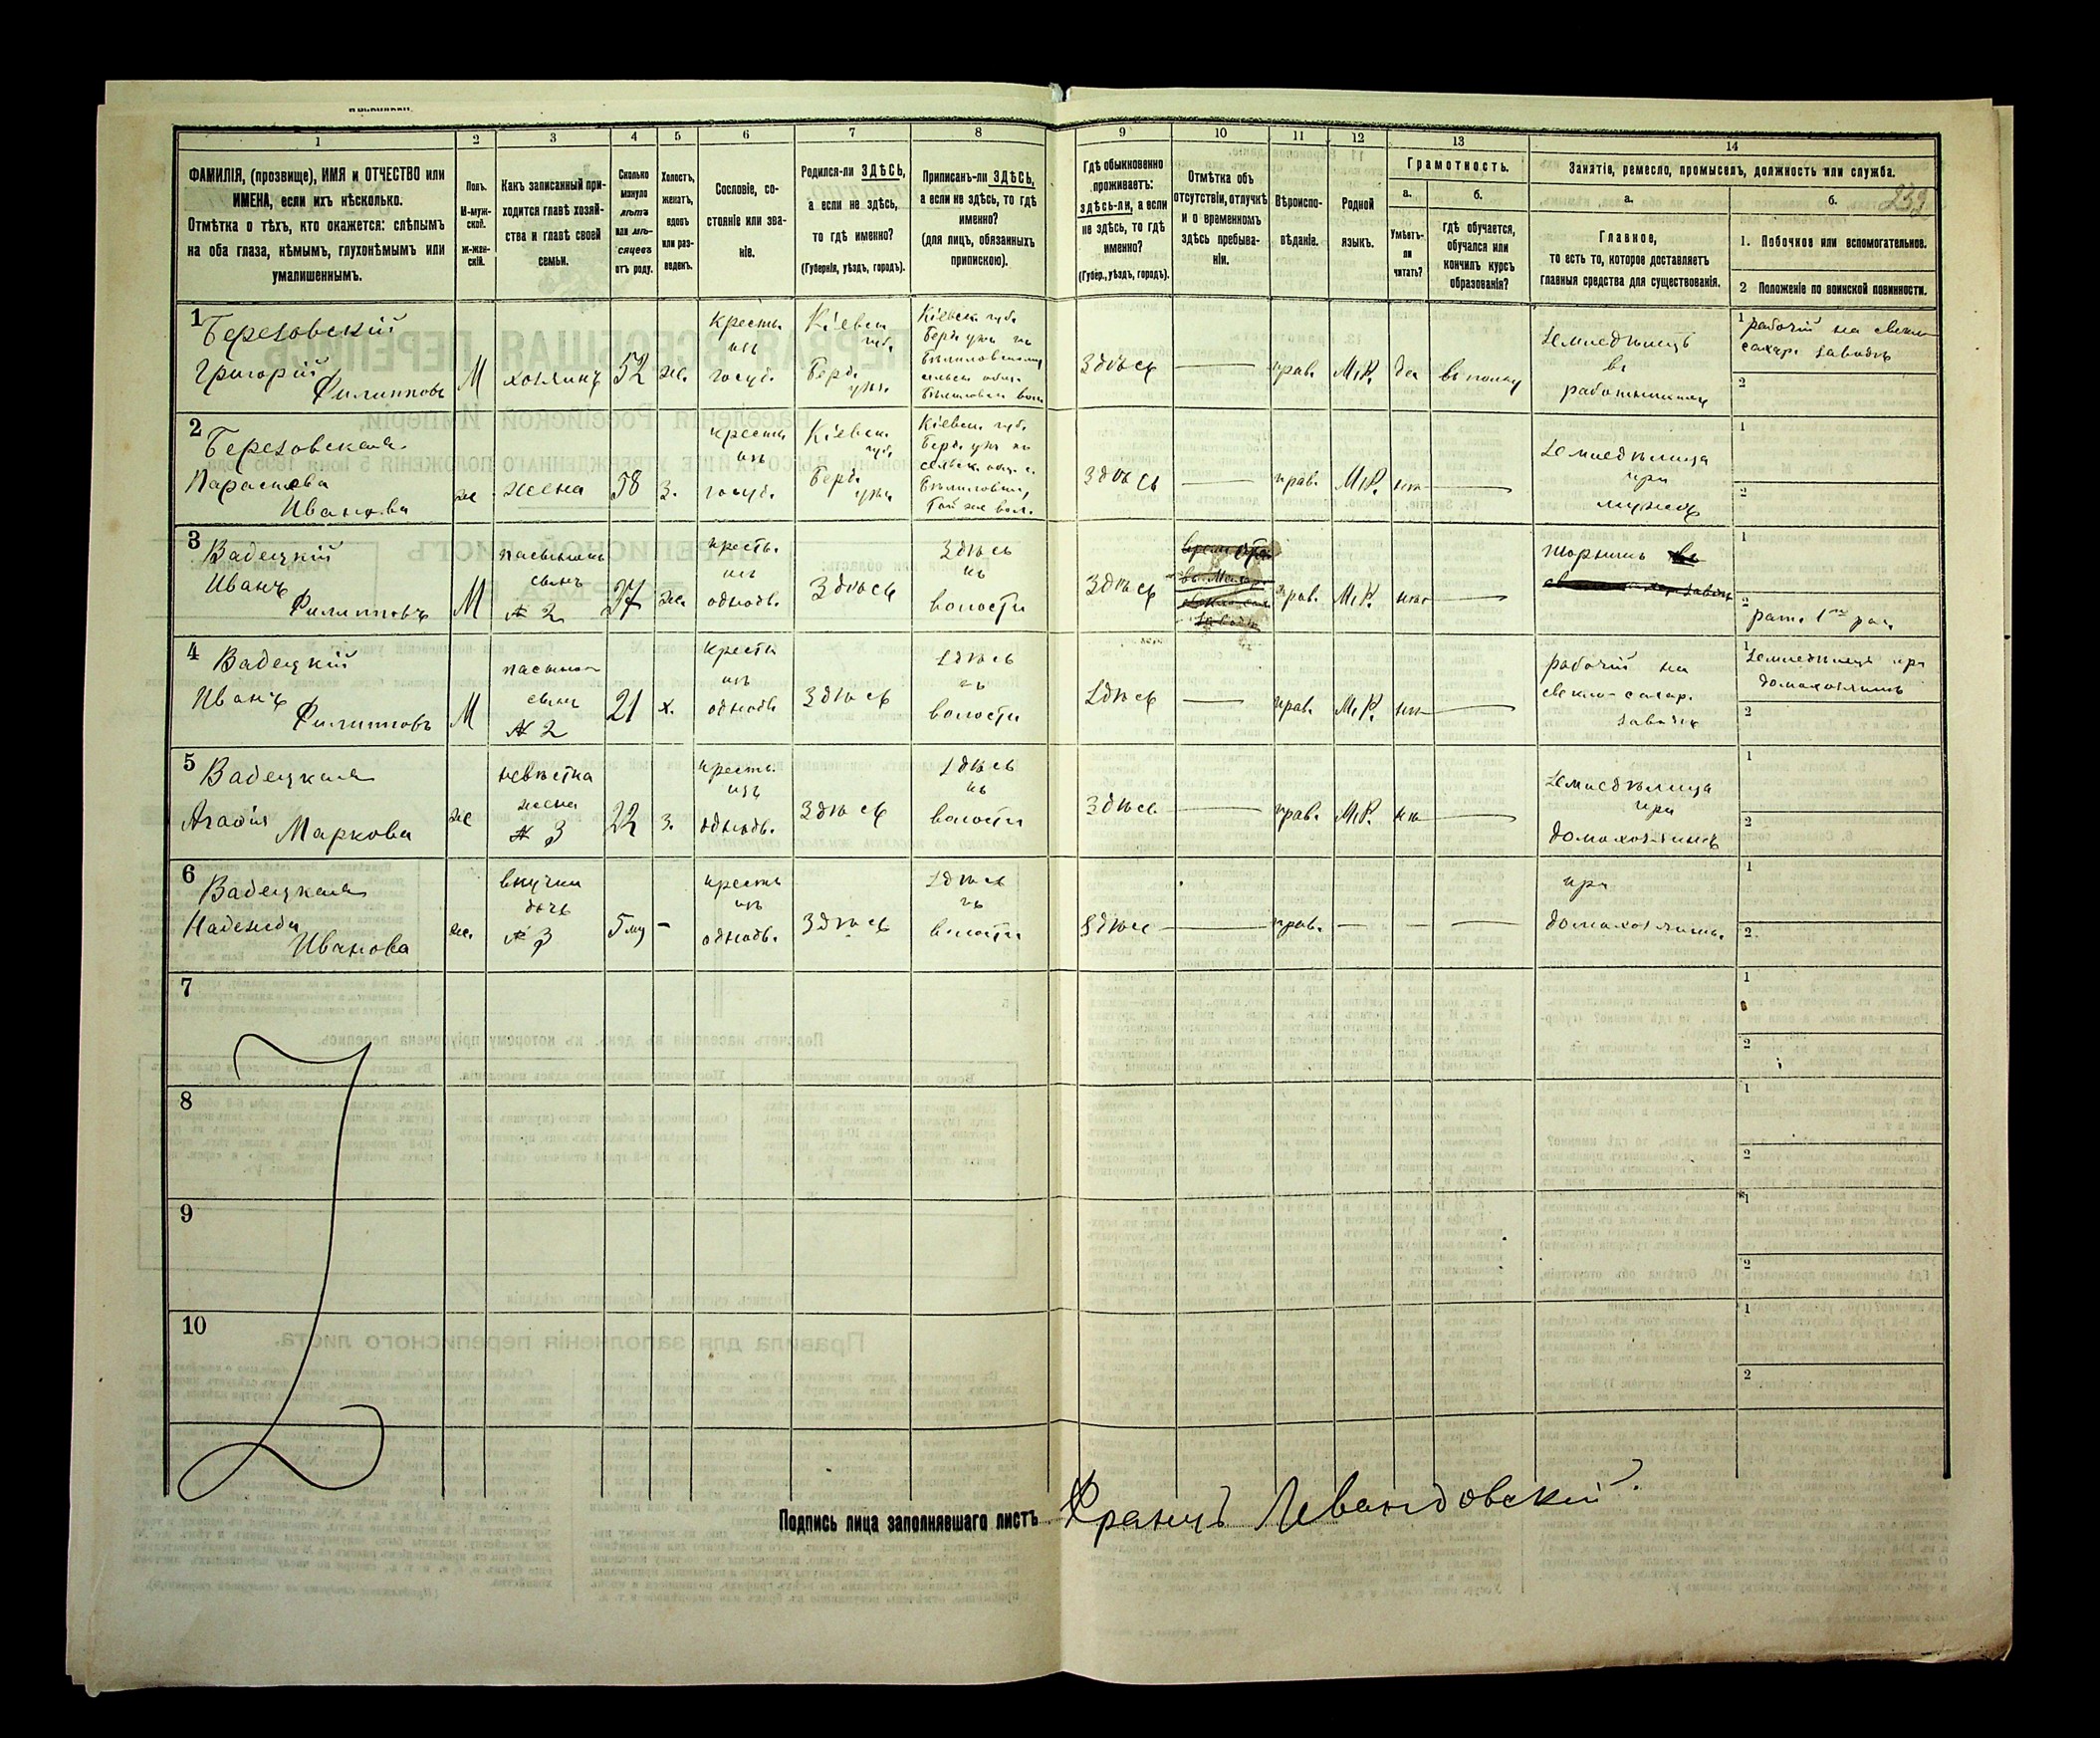 1
2
3
4
5
6
7
8
9
10
11
12
13
14
ФАМИЛІЯ, (прозвище), ИМЯ и ОТЧЕСТВО или
ИМЕНА, если ихъ нѣсколько.
Отмѣтка о тѣхъ, кто окажется: слѣпымъ
на оба глаза, нѣмымъ, глухонѣмымъ или
умалишеннымъ.
Полъ.
М-муж-
ской.
ж-жен-
скій.
Какъ записанный при-
ходится главѣ хозяй-
ства и главѣ своей
семьи.
Сколько
минуло
лѣтъ
или мѣ-
сяцевъ
отъ роду.
Холостъ,
женатъ,
вдовъ
или раз-
веденъ.
Сословіе, со-
стояніе или зва-
ніе.
Родился-ли ЗДѢСЬ,
а если не здѣсь,
то гдѣ именно?
(Губернія, уѣздъ, городъ).
Приписанъ-ли ЗДѢСЬ,
а если не здѣсь, то гдѣ
именно?
(для лицъ, обязанныхъ
припискою).
Гдѣ обыкновенно
проживаетъ:
здѣсь-ли, а если
не здѣсь, то гдѣ
именно?
(Губер., уѣздъ, городъ).
Отмѣтка объ
отсутствіи, отлучкѣ
и о временномъ
здѣсь пребыва-
ніи.
Вѣроиспо-
вѣданіе.
Родной
языкъ.
Грамотность.
а.
Умѣетъ-
ли
читать?
б.
гдѣ обучается,
обучался или
кончилъ курсъ
образованія?
Занятія, ремесло, промыселъ, должность или служба.
а.
Главное,
то есть то, которое доставляетъ
главныя средства для существованія.
б. 239
1. Побочное или вспомогательное.
2 Положеніе по воинской повинности.
1
Березовскій
Григорій
Филипповъ
М
хозяинъ
52
же.
кресть
изъ
госуд.
Кіевск
губ.
Берд.
уѣз.
Кіевск губ.
Здѣсь
прав.
М.Р.
да
въ полку
Земледѣлецъ
въ
работникахъ
1 рабочій на свекло
сахар. заводѣ
2
2
Березовская
Параскева
Иванова
же
жена
58
з.
кресть
изъ
госуд.
Кіевск.
губ.
Берд.
уѣз
Кіевск губ.
Здѣсь
прав.
М.Р.
нѣт
Земледѣлица
при
мужѣ
1
2
3
Вадецкій
Иванъ
Филипповъ
М
пасынокъ
сынъ
№ 2
же.
кресть.
изъ
однодв.
Здѣсь
Здѣсь
къ
волости
Здѣсь
прав.
М.Р.
нѣт
1
2 рат. 1го раз.
4
Вадецкій
Иванъ
Филипповъ
М
пасынок
сынъ
№ 2
21
х.
кресть
изъ
однодв
Здѣсь
Здѣсь
къ
волости
Здѣсь
прав.
М.Р.
нѣт
рабочій на
свекло-сахар.
заводѣ
1 Земледѣлецъ при
домохозяинѣ
2
5
Вадецкая
Агафія
Маркова
же
невѣстка
жена
№ 3
22
з.
кресть.
изъ
однодв.
Здѣсь
Здѣсь
къ
волости
Здѣсь
прав.
М.Р.
нѣ
Земледѣлица
при
домохозяинѣ
1
2
6
Вадецкая
Надежда
Иванова
же.
внучка
дочь
№ 3
5 мц
кресть
изъ
однодв.
Здѣсь
Здѣсь
къ
волости
Здѣсь
прав.
при
домохозяинѣ.
1
2
7
1
2
8
1
2
9
1
2
10
1
2
Подпись лица заполнявшаго листъ Францъ Левандовскій.